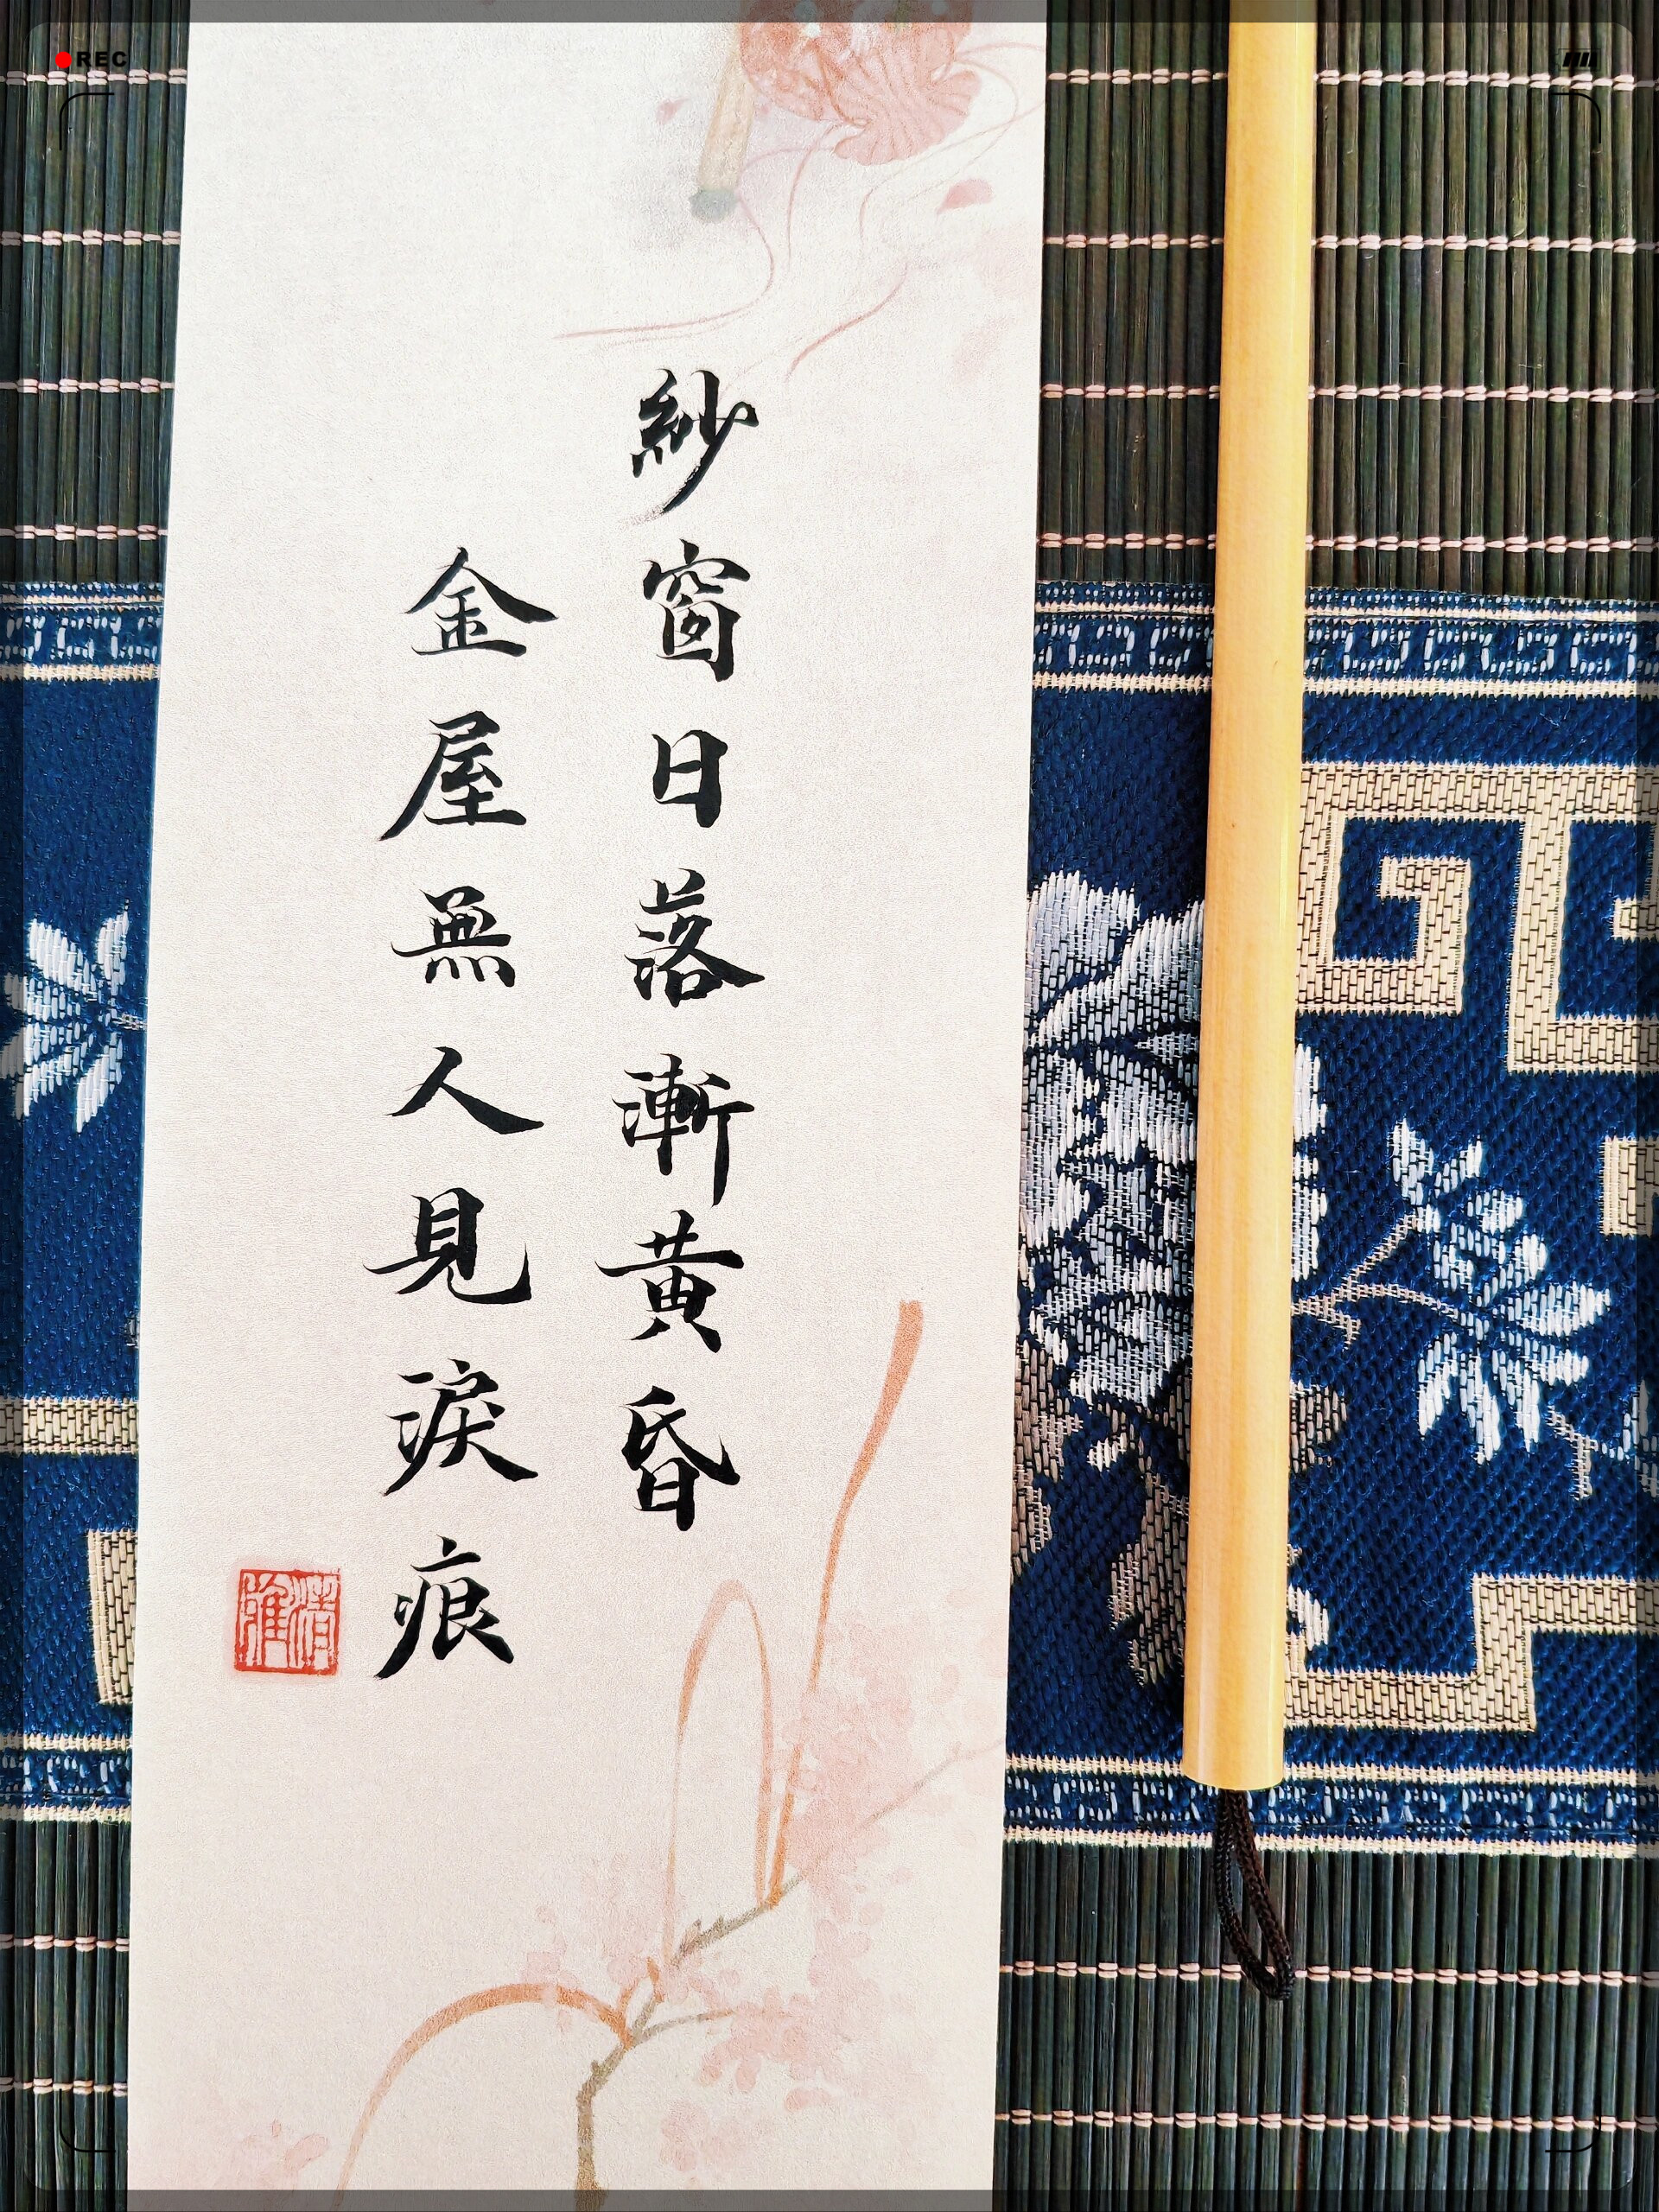 REC
紗窗日落漸黄昏
金屋無人見淚痕
清雅